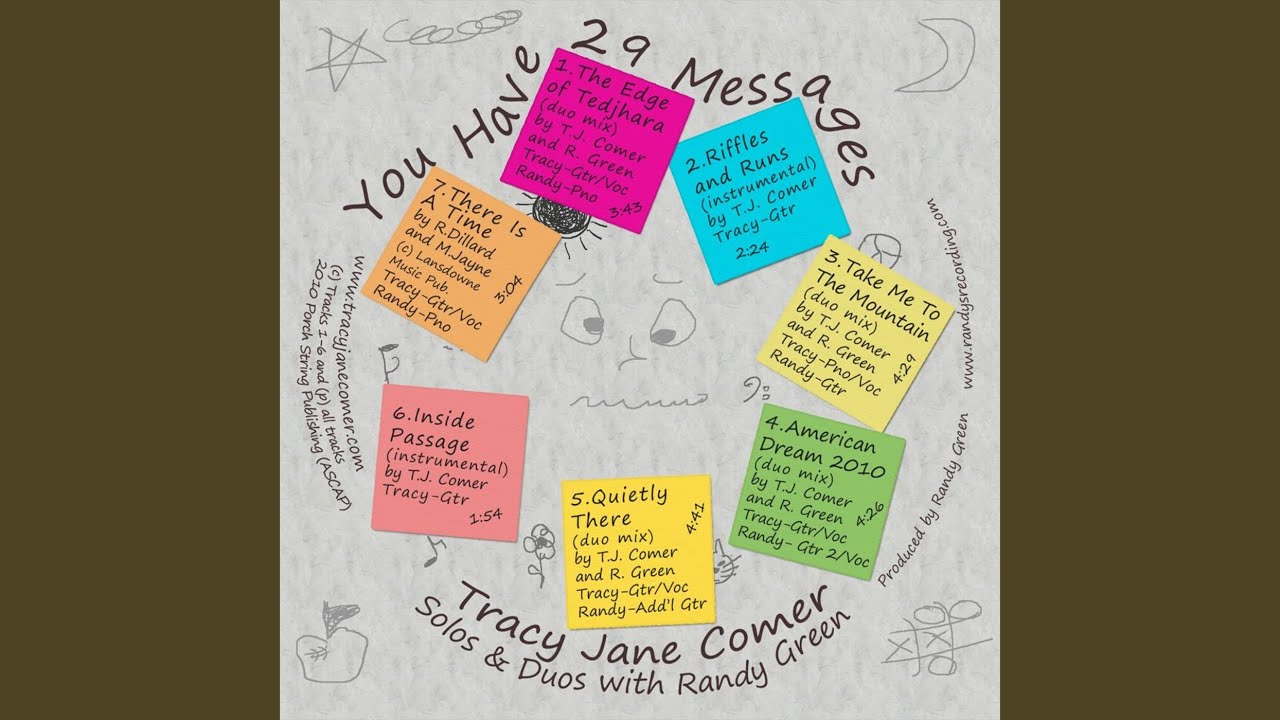 You Have 29 Messages
1.The Edge
of Tedjhara
(duo mix)
by T.J. Comer
and R. Green
Tracy-Gtr/Voc
Randy-Pno
3:43
2.Riffles
and Runs
(instrumental)
by T.J. Comer
Tracy-Gtr
2:24
3.Take Me To
The Mountain
(duo mix)
by T.J. Comer
and R. Green
Tracy-Pno/Voc
Randy-Gtr
4:29
4.American
Dream 2010
(duo mix)
by T.J. Comer
and R. Green
Tracy-Gtr/Voc
Randy- Gtr 2/Voc
4:26
5.Quietly
There
(duo mix)
by T.J. Comer
and R. Green
Tracy-Gtr/Voc
Randy-Add'l Gtr
4:41
6.Inside
Passage
(instrumental)
by T.J. Comer
Tracy-Gtr
1:54
7.There Is
A Time
by R.Dillard
and M.Jayne
(c) Lansdowne
Music Pub.
Tracy-Gtr/Voc
Randy-Pno
3:04
www.tracyjanecomer.com
(c) Tracks 1-6 and (p) all tracks
2010 Porch String Publishing (ASCAP)
www.randysrecording.com
Produced by Randy Green
Tracy Jane Comer
Solos & Duos with Randy Green